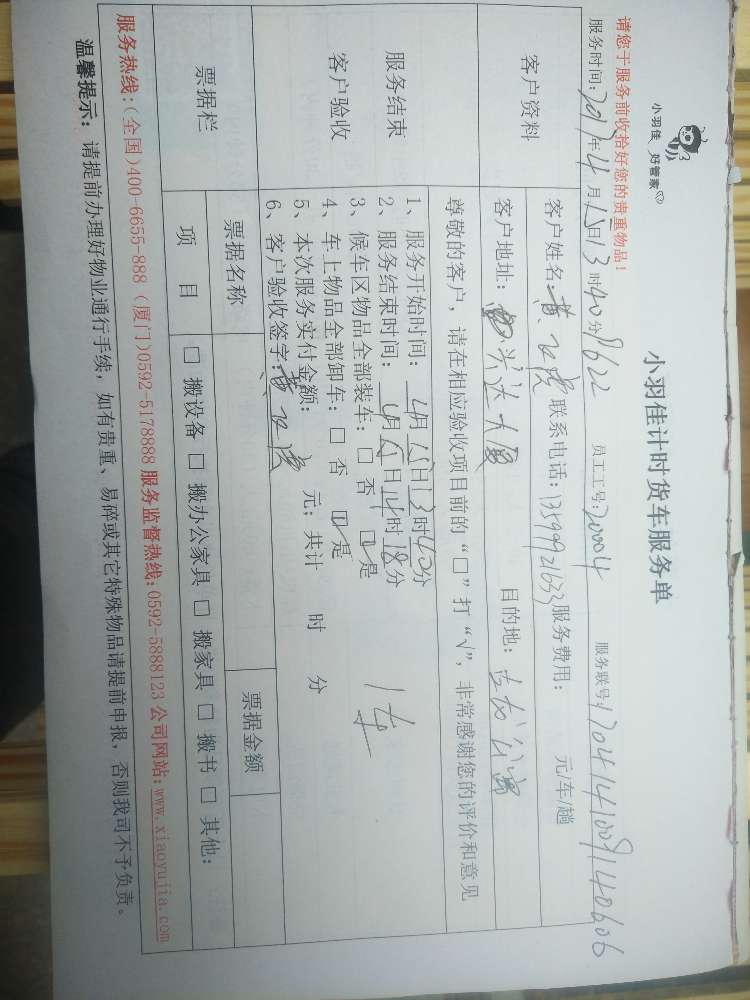 小羽佳 好管家
小羽佳计时货车服务单
请您于服务前收拾好您的贵重物品!
服务时间:2017年4月15日13时40分 8622 员工工号:20004 服务联号:1704141009140606
客户资料
客户姓名:黄 联系电话:13599921633 服务费用: 元/车/趟
客户地址: 兴达大厦 目的地:
服务结束
客户验收
尊敬的客户,请在相应验收项目前的“□”打“√”,非常感谢您的评价和意见
1、服务开始时间:4月15日13时40分
2、服务结束时间:4月15日14时18分
3、候车区物品全部装车:□ 否 ☑ 是
4、车上物品全部卸车:□ 否 ☑ 是
1车
5、本次服务实付金额: 元;共计 时 分
6、客户验收签字:黄
票据栏
票据名称 票据金额
项 目 □ 搬设备 □ 搬办公家具 □ 搬家具 □ 搬书 □ 其他:
服务热线:(全国)400-6655-888 (厦门)0592-5178888 服务监督热线:0592-5888123 公司网站:www.xiaoyujia.com
温馨提示:请提前办理好物业通行手续,如有贵重、易碎或其它特殊物品请提前申报,否则我司不予负责。